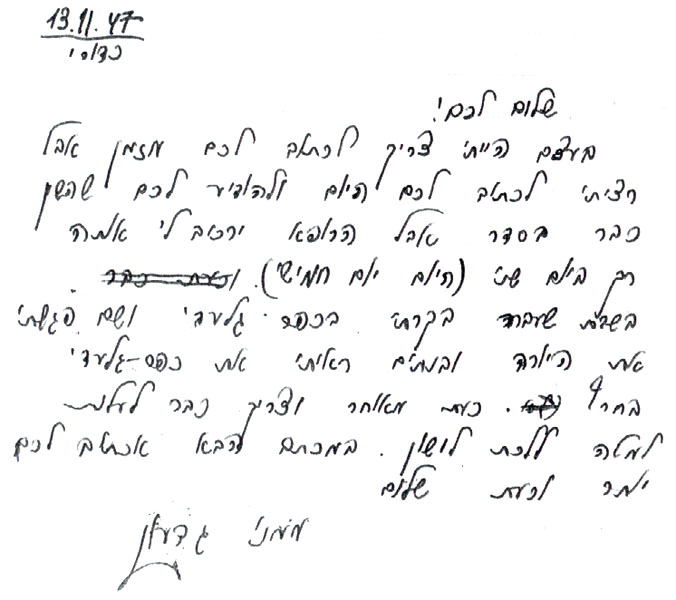 13.11.47
כדורי
שלום לכם!
בעצם הייתי צריך לכתוב לכם מזמן אבל
רציתי לכתוב לכם היום ולהודיע לכם שהשן
כבר בסדר אבל הרופא ירכיב לי אותה
רק ביום שני (היום יום חמישי).
בשבת שעברה בקרתי בכפר גלעדי ושם פגשתי
את היורה ובנתיים ראיתי את כפר-גלעדי
בחרף. כעת מאוחר וצריך כבר לעלות
למטה ללכת לישון. במכתב הבא אכתוב לכם
יותר וכעת שלום
ממני גדעון